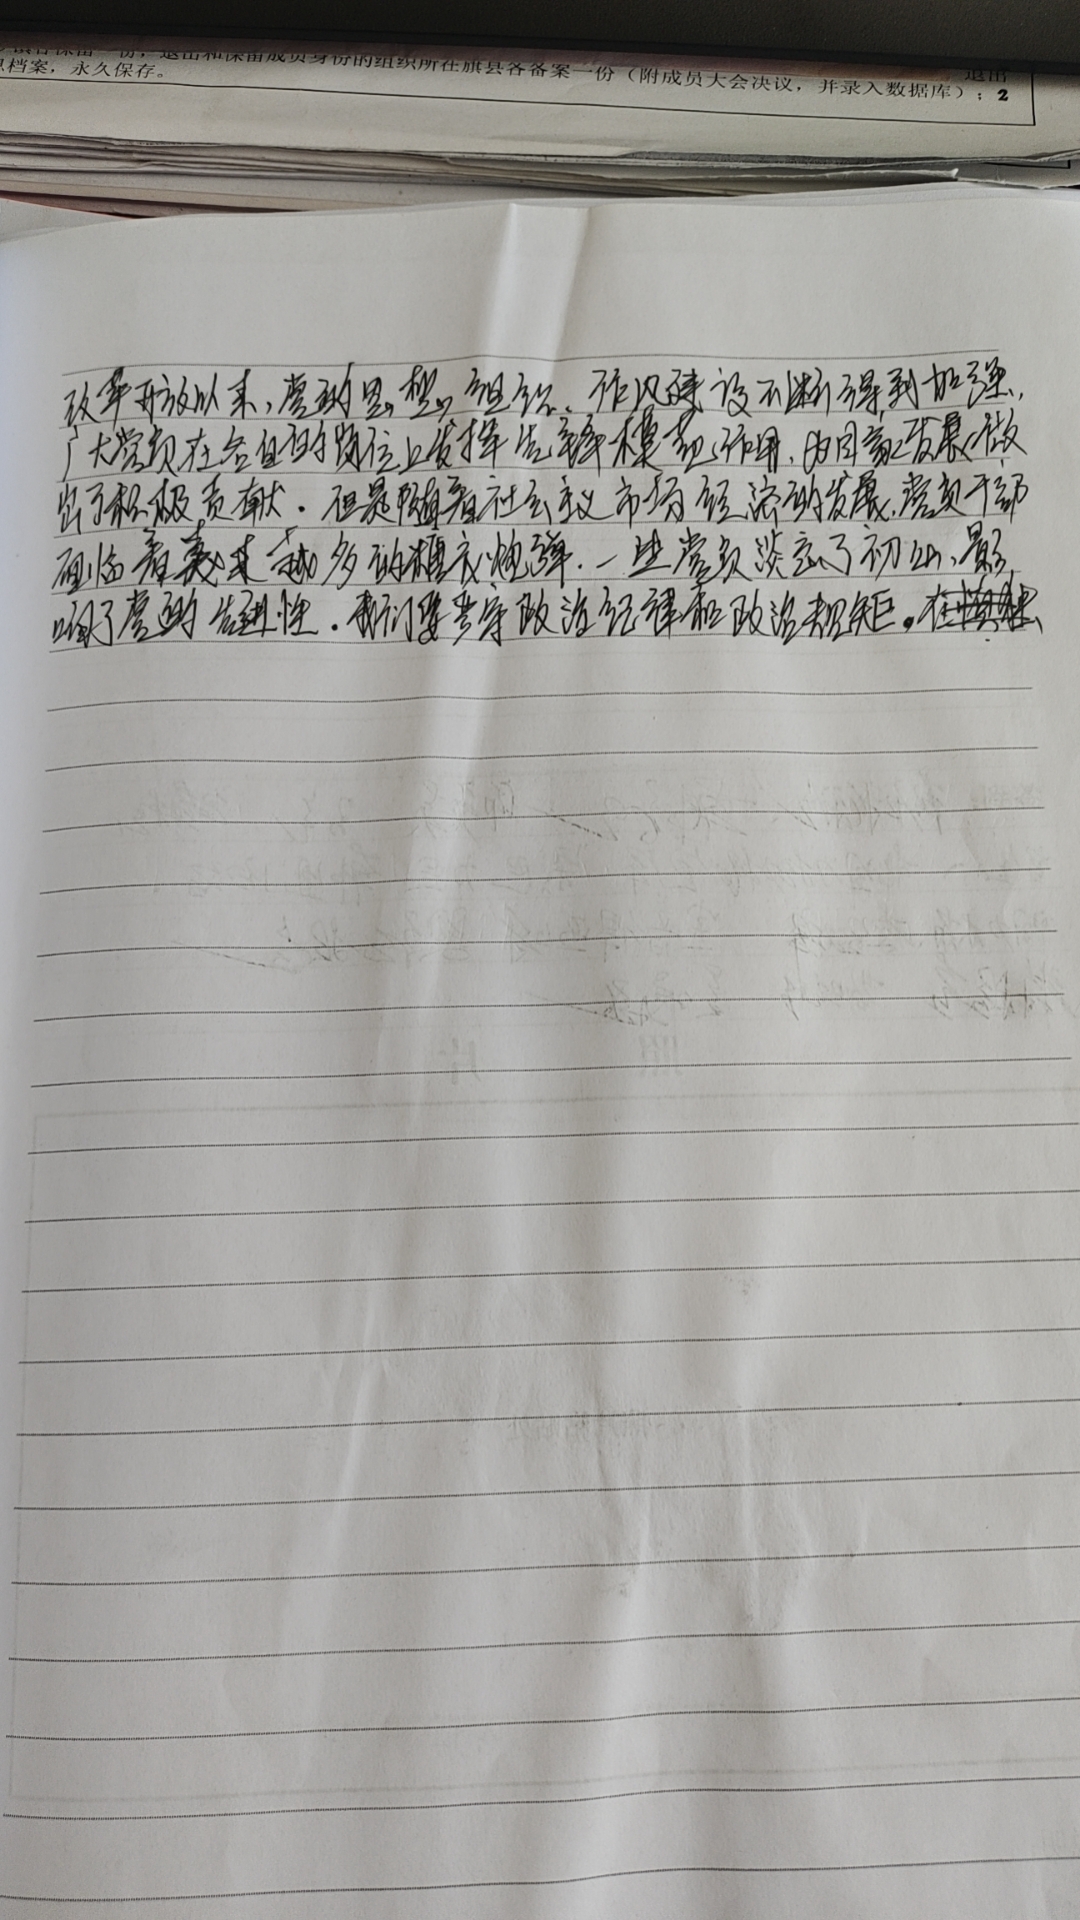 份，退出和保留成员身份的组织所在旗县各备案一份（附成员大会决议，并录入数据库）；2
档案，永久保存。
退出
改革开放以来，党的思想、组织、作风建设不断得到加强，
广大党员在各自的岗位上发挥先锋模范作用，为国家发展做
出了积极贡献。但是随着社会主义市场经济的发展，党员干部
面临着越来越多的诱惑，一些党员淡忘了初心，影
响了党的先进性。我们要遵守政治纪律和政治规矩。在